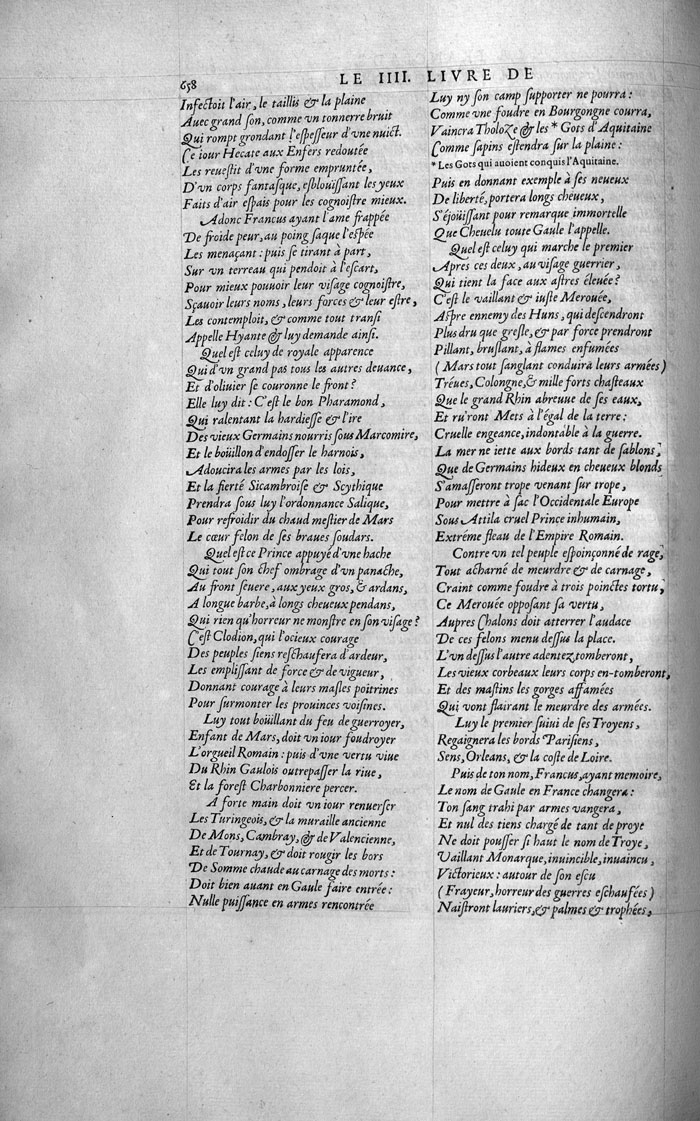 658
LE IIII. LIVRE DE
Infectoit l'air, le taillis & la plaine
Auec grand son, comme vn tonnerre bruit
Qui rompt grondant l'espesseur d'vne nuict.
Ce iour Hecate aux Enfers redoutée
Les reuestit d'vne forme empruntée,
D'vn corps fantasque, esblouïssant les yeux
Faits d'air espais pour les cognoistre mieux.
Adonc Francus ayant l'ame frappée
De froide peur, au poing saque l'espée
Les menaçant: puis se tirant à part,
Sur vn terreau qui pendoit à l'escart,
Pour mieux pouuoir leur visage cognoistre,
Sçauoir leurs noms, leurs forces & leur estre,
Les contemploit, & comme tout transi
Appelle Hyante & luy demande ainsi.
Quel est celuy de royale apparence
Qui d'vn grand pas tous les autres deuance,
Et d'oliuier se couronne le front?
Elle luy dit: C'est le bon Pharamond,
Qui ralentant la hardiesse & l'ire
Des vieux Germains nourris sous Marcomire,
Et le boüillon d'endosser le harnois,
Adoucira les armes par les lois,
Et la fierté Sicambroise & Scythique
Prendra sous luy l'ordonnance Salique,
Pour refroidir du chaud mestier de Mars
Le cœur felon de ses braues soudars.
Quel est ce Prince appuyé d'vne hache
Qui tout son chef ombrage d'vn panache,
Au front seuere, aux yeux gros, & ardans,
A longue barbe, à longs cheueux pendans,
Qui rien qu'horreur ne monstre en son visage?
C'est Clodion, qui l'ocieux courage
Des peuples siens reschaufera d'ardeur,
Les emplissant de force & de vigueur,
Donnant courage à leurs masles poitrines
Pour surmonter les prouinces voisines.
Luy tout boüillant du feu de guerroyer,
Enfant de Mars, doit vn iour foudroyer
L'orgueil Romain: puis d'vne vertu viue
Du Rhin Gaulois outrepasser la riue,
Et la forest Charbonniere percer.
A forte main doit vn iour renuerser
Les Turingeois, & la muraille ancienne
De Mons, Cambray, & de Valencienne,
Et de Tournay, & doit rougir les bors
De Somme chaude au carnage des morts:
Doit bien auant en Gaule faire entrée:
Nulle puissance en armes rencontrée
Luy ny son camp supporter ne pourra:
Comme vne foudre en Bourgongne courra,
Vaincra Tholoze & les * Gots d'Aquitaine
Comme sapins estendra sur la plaine:
* Les Gots qui auoient conquis l'Aquitaine.
Puis en donnant exemple à ses neueux
De liberté, portera longs cheueux,
S'éjoüissant pour remarque immortelle
Que Cheuelu toute Gaule l'appelle.
Quel est celuy qui marche le premier
Apres ces deux, au visage guerrier,
Qui tient la face aux astres éleuée?
C'est le vaillant & iuste Merouée,
Aspre ennemy des Huns, qui descendront
Plus dru que gresle, & par force prendront
Pillant, bruslant, à flames enfumées
(Mars tout sanglant conduira leurs armées)
Tréues, Colongne, & mille forts chasteaux
Que le grand Rhin abreuue de ses eaux,
Et ru'ront Mets à l'égal de la terre:
Cruelle engeance, indontable à la guerre.
La mer ne iette aux bords tant de sablons,
Que de Germains hideux en cheueux blonds
S'amasseront trope venant sur trope,
Pour mettre à sac l'Occidentale Europe
Sous Attila cruel Prince inhumain,
Extréme fleau de l'Empire Romain.
Contre vn tel peuple espoinçonné de rage,
Tout acharné de meurdre & de carnage,
Craint comme foudre à trois poinctes tortu,
Ce Merouée opposant sa vertu,
Aupres Chalons doit atterrer l'audace
De ces felons menu dessus la place.
L'vn dessus l'autre adentez tomberont,
Les vieux corbeaux leurs corps en-tomberont,
Et des mastins les gorges affamées
Qui vont flairant le meurdre des armées.
Luy le premier suiui de ses Troyens,
Regaignera les bords Parisiens,
Sens, Orleans, & la coste de Loire.
Puis de ton nom, Francus, ayant memoire,
Le nom de Gaule en France changera:
Ton sang trahi par armes vangera,
Et nul des tiens chargé de tant de proye
Ne doit pousser si haut le nom de Troye,
Vaillant Monarque, inuincible, inuaincu,
Victorieux: autour de son escu
(Frayeur, horreur des guerres eschaufées)
Naistront lauriers, & palmes & trophées,